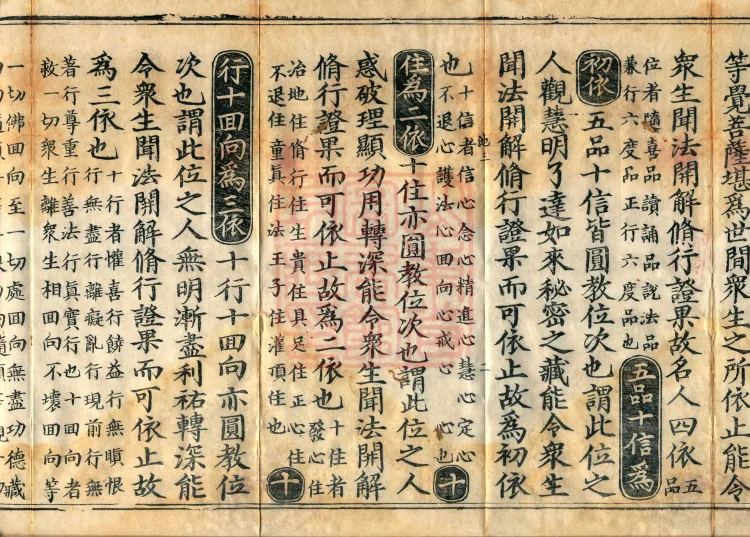 等覺菩薩堪爲世間衆生之所依止能令
衆生聞法開解脩行證果故名人四依五
品
位者隨喜品讀誦品說法品
兼行六度品正行六度品也
五品十信爲
初依五品十信皆圓教位次也謂此位之
人觀慧明了達如來秘密之藏能令衆生
聞法開解脩行證果而可依止故爲初依
也十信者信心念心精進心慧心定心
也不退心護法心回向心戒心心也
十
住爲二依十住亦圓教位次也謂此位之人
惑破理顯功用轉深能令衆生聞法開解
脩行證果而可依止故爲二依也十住者
發心住
治地住脩行住生貴住具足住正心住
不退住童眞住法王子住灌頂住也
十
行十回向爲三依十行十回向亦圓教位
次也謂此位之人無明漸盡利祐轉深能
令衆生聞法開解脩行證果而可依止故
爲三依也十行者懽喜行饒益行無瞋恨
行無盡行離癡亂行現前行無
著行尊重行善法行眞實行也十回向者
救一切衆生離衆生相回向不壞回向等
一切佛回向至一切處回向無盡功德藏